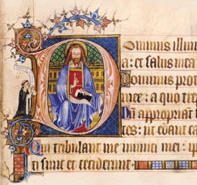 Dominus illumi
a: et salus mea
Dominus prot
ee: a quo tre
Dum appropiant
tes: ut edant car
Qui tribulant me inimici mei: ip
ti sunt et ceciderunt